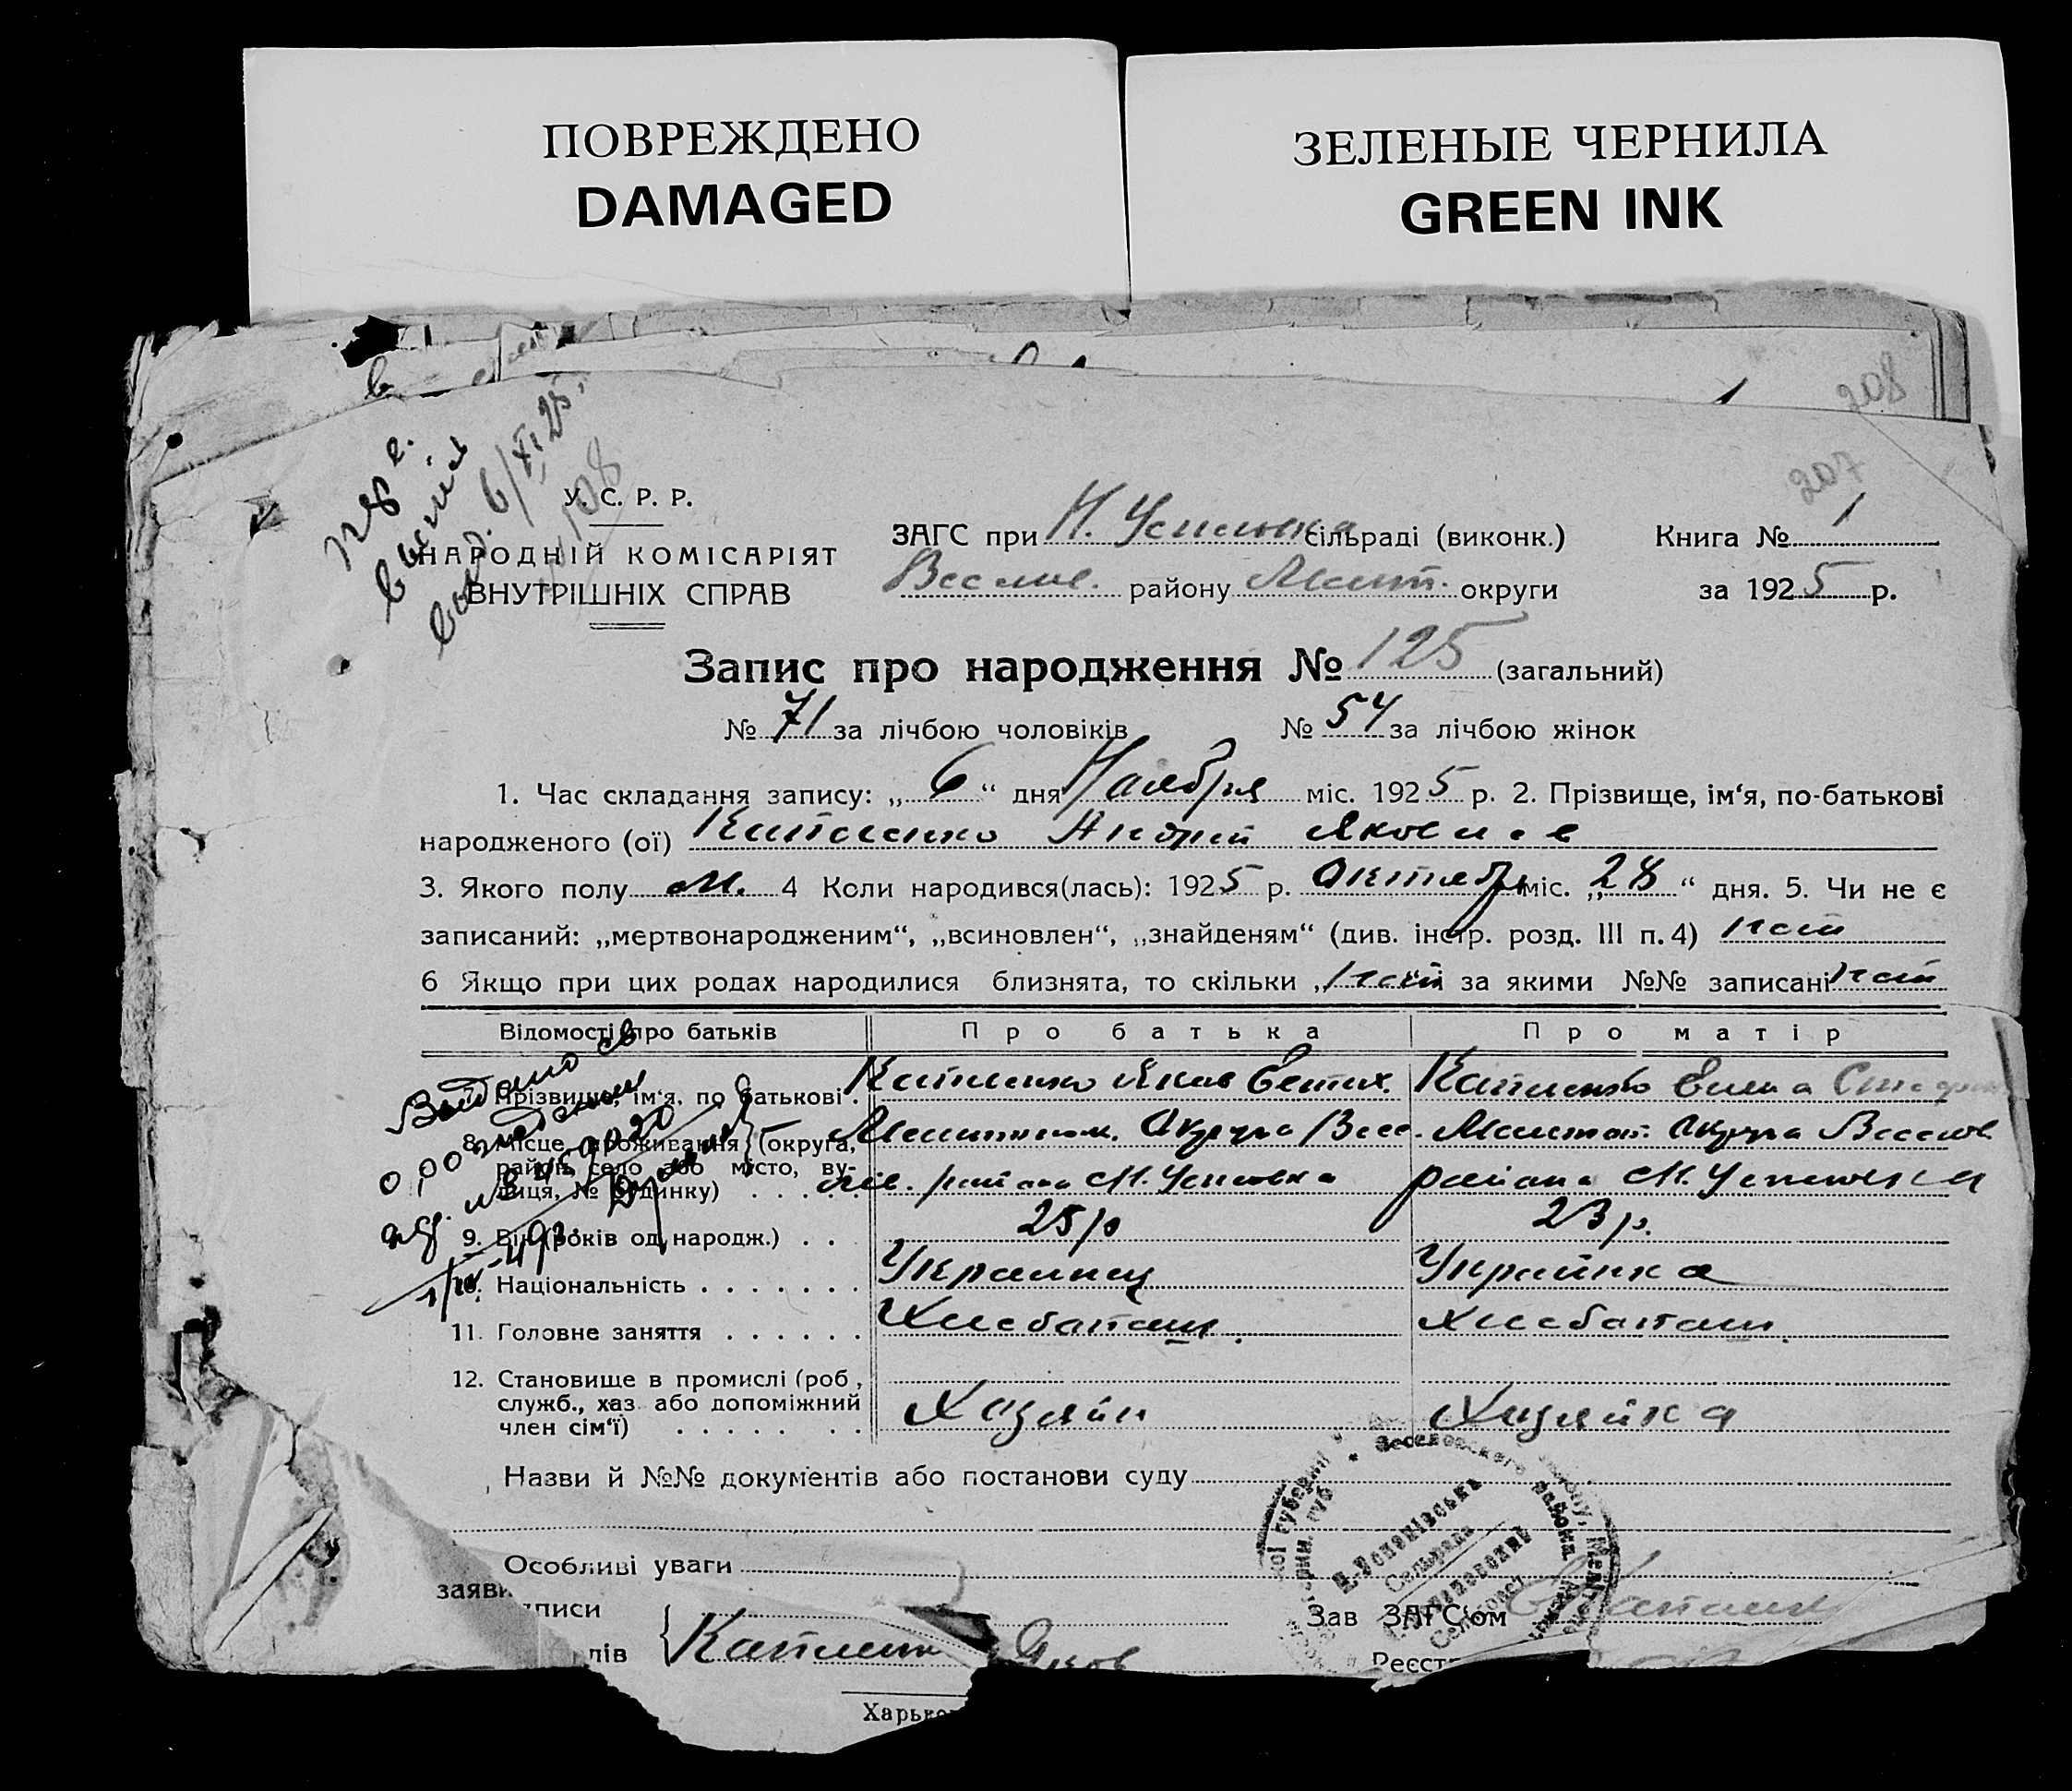 ПОВРЕЖДЕНО
DAMAGED
ЗЕЛЕНЫЕ ЧЕРНИЛА
GREEN INK
208
207
6/XI 25.
108
У. С. Р. Р.
НАРОДНІЙ КОМІСАРІЯТ
ВНУТРІШНІХ СПРАВ
ЗАГС при Н. Успеновка сільраді (виконк.)
Весел. району Мелит. округи
Книга № 1
за 1925 р.
Запис про народження № 125 (загальний)
№ 71 за лічбою чоловіків № 54 за лічбою жінок
1. Час складання запису: „ 6 “ дня Ноября міс. 1925 р. 2. Прізвище, ім‘я, по-батькові
народженого (ої) Капленко Андрій Яковлев
3. Якого полу м. 4 Коли народився(лась): 1925 р. Октября міс. „ 28 “ дня. 5. Чи не є
записаний: „мертвонародженим“, „всиновлен“, „знайденям“ (див. інстр. розд. III п. 4) нет
6 Якщо при цих родах народилися близнята, то скільки „ нет “ за якими №№ записані нет
Відомості про батьків Про батька Про матір
7. Прізвище, ім‘я, по батькові . Капленко Яков Евтих. Капленко
8. Місце проживання (округа, район, село або місто, вулиця, № будинку)
Округа Весе. Мелитоп. Округа Веселов.
района Н. Успеновка района Н. Успеновка
9. Вік (років од народж.) . . 25 р 23 р.
10. Національність . . . . . . . Украинец Украинка
11. Головне заняття . . . . . . Хлебопаш. Хлебопаш.
12. Становище в промислі (роб , служб., хаз або допоміжний член сім‘ї) Хазяйн Хазяйка
Выдано св
о рождении
Назви й №№ документів або постанови суду
Особливі уваги
заяви
писи
лів Капленко Яков
Зав ЗАГС‘ом
Реєст
Харько